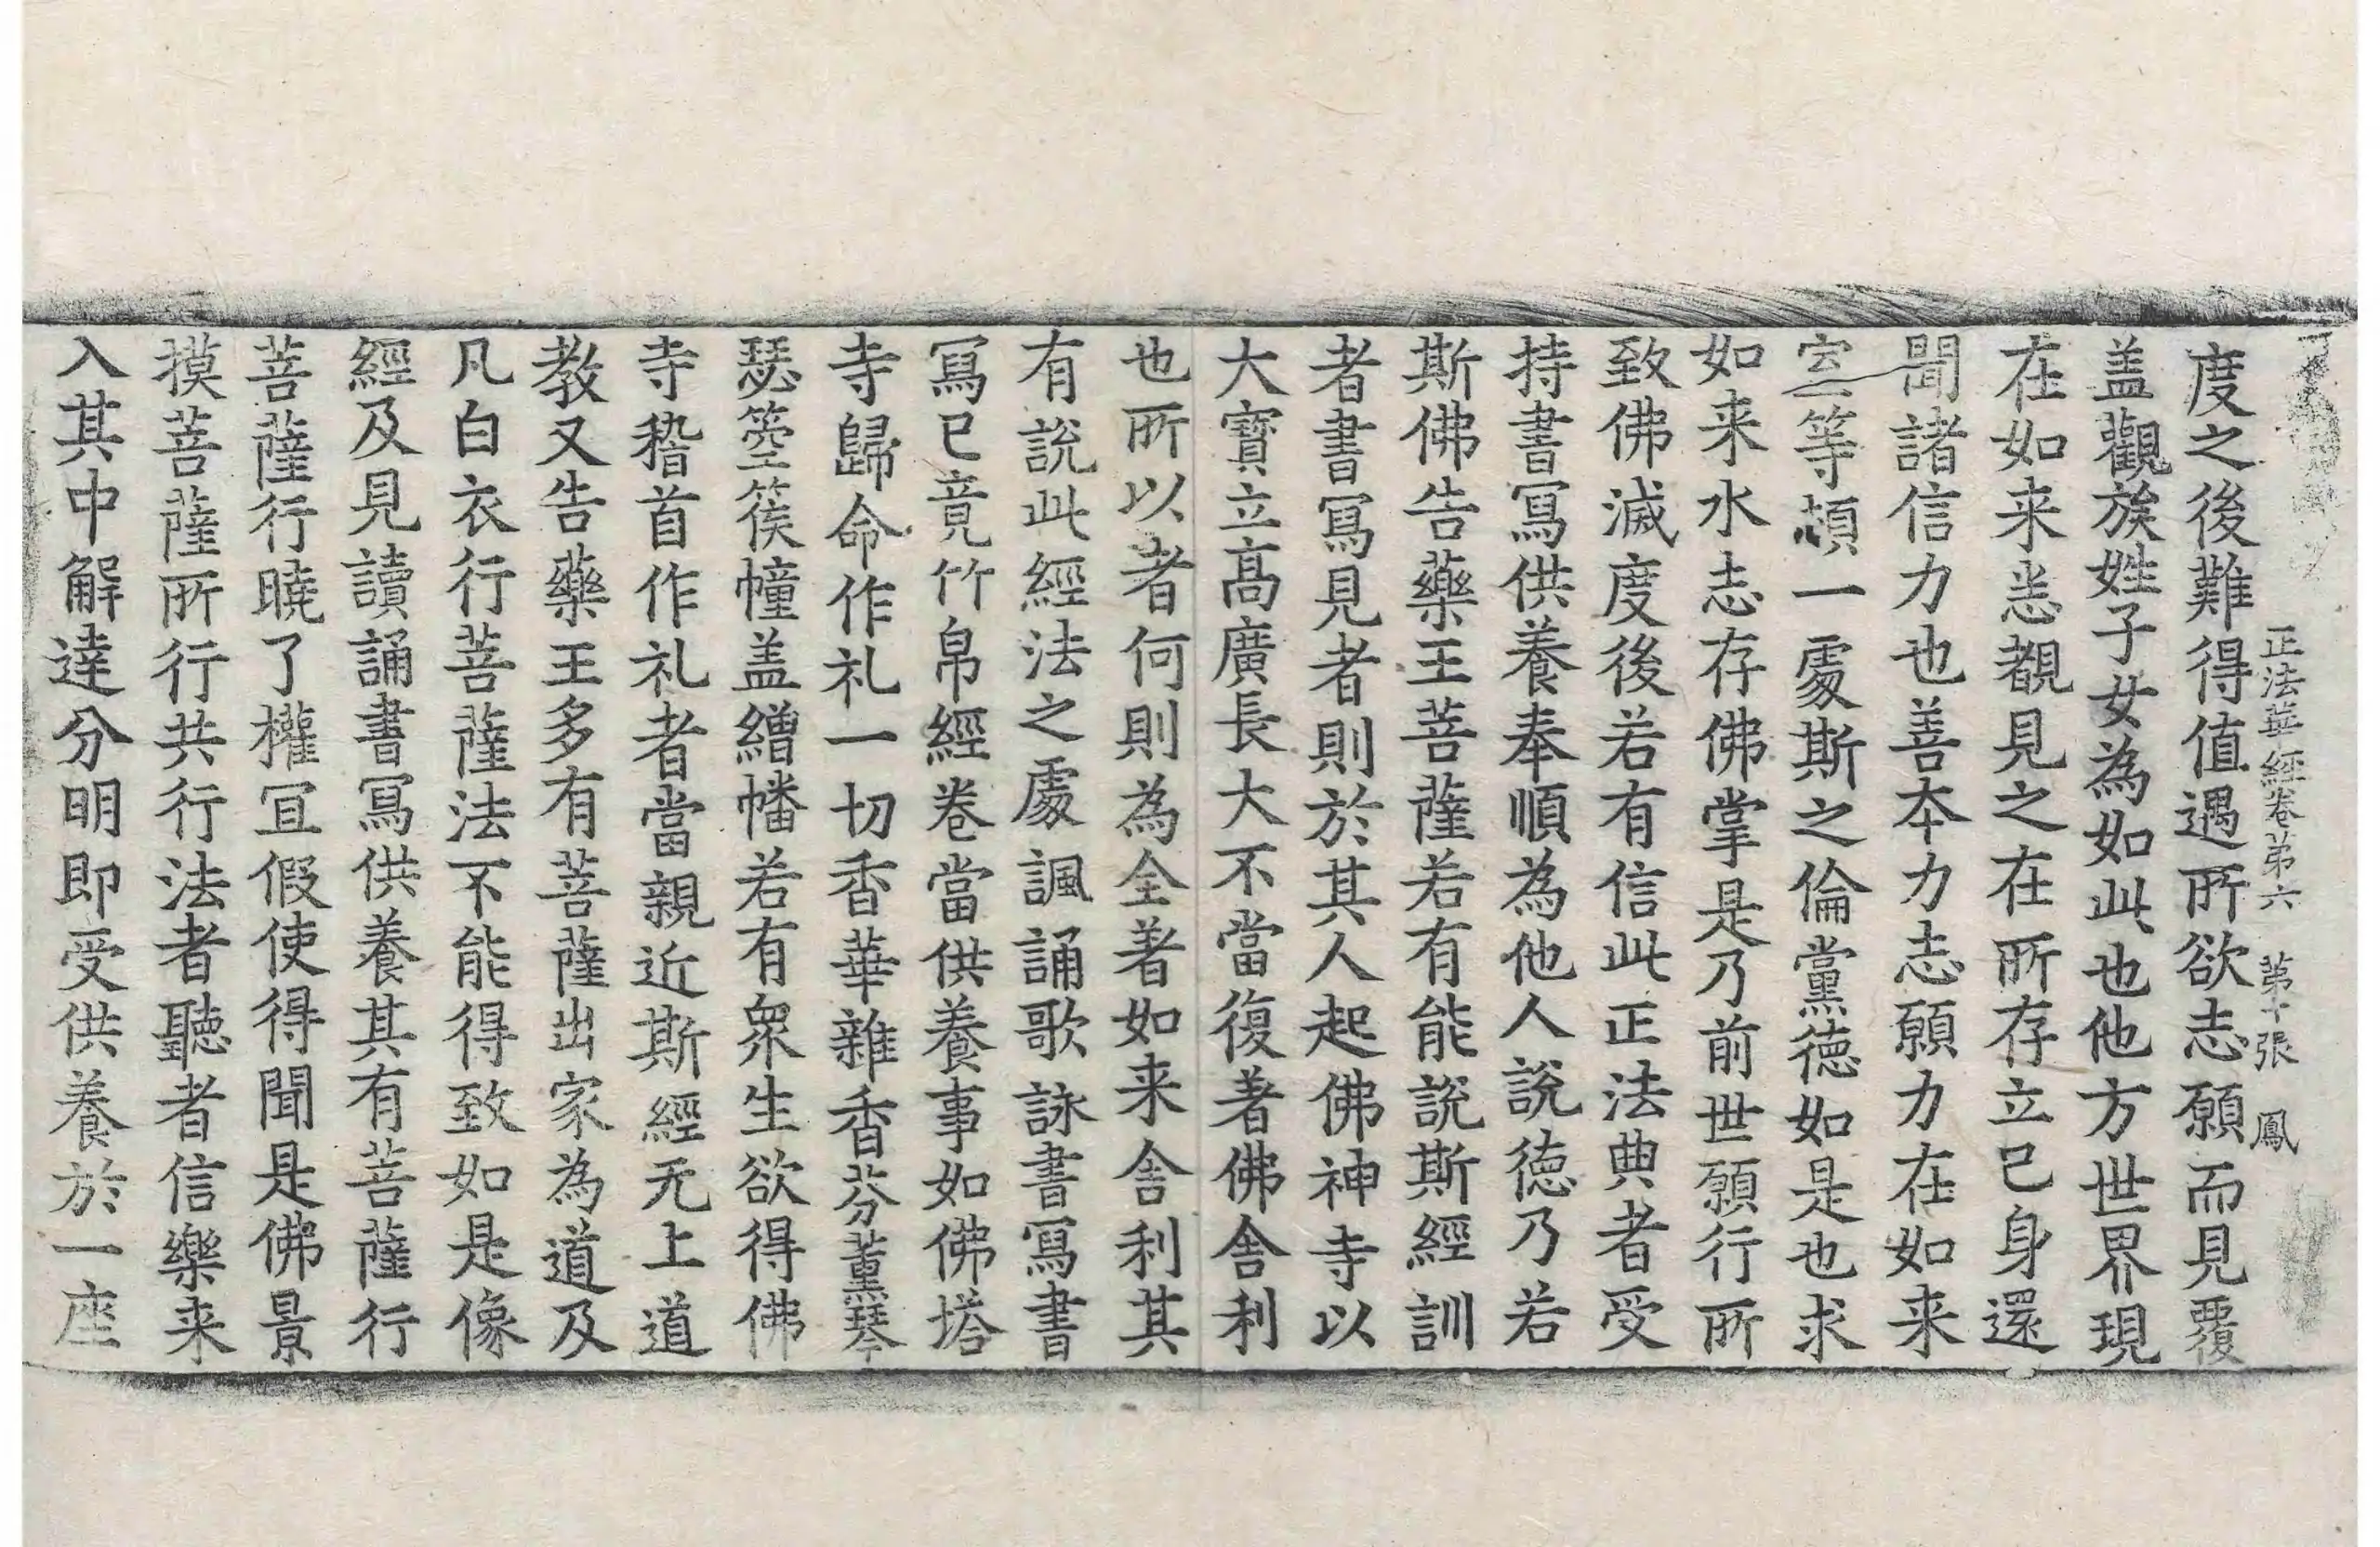 正法華經卷第六　第十張　鳳
度之後難得值遇所欲志願而見覆
盖觀族姓子女為如此也他方世界現
在如来悉覩見之在所存立己身還
聞諸信力也善本力志願力在如来
室等頓一處斯之倫黨徳如是也求
如来水志存佛掌是乃前世願行所
致佛滅度後若有信此正法典者受
持書冩供養奉順為他人說徳乃若
斯佛告藥王菩薩若有能說斯經訓
者書冩見者則於其人起佛神寺以
大寶立髙廣長大不當復著佛舎利
也所以者何則為全著如来舎利其
有說此經法之處諷誦歌詠書冩書
冩已竟竹帛經卷當供養事如佛塔
寺歸命作礼一切香華雜香芬薰琴
瑟箜篌幢盖繒幡若有衆生欲得佛
寺稽首作礼者當親近斯經无上道
教又告藥王多有菩薩出家為道及
凡白衣行菩薩法不能得致如是像
經及見讀誦書冩供養其有菩薩行
菩薩行曉了權冝假使得聞是佛景
摸菩薩所行共行法者聽者信樂来
入其中解達分明即受供養於一座